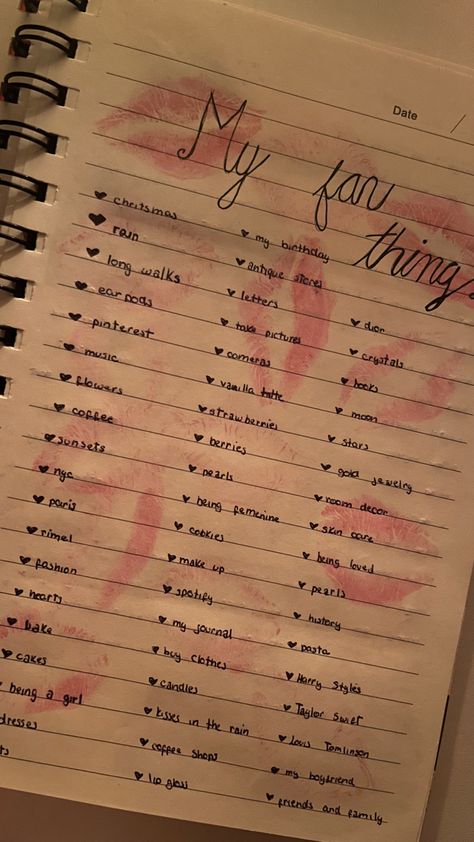 Date /
My fav
things
♥ christmas
♥ rain
♥ long walks
♥ earpods
♥ pinterest
♥ music
♥ flowers
♥ coffee
♥ sunsets
♥ nyc
♥ paris
♥ rimel
♥ fashion
♥ hearts
♥ bake
♥ cakes
♥ being a girl
dresses
♥ my birthday
♥ antique stores
♥ letters
♥ take pictures
♥ cameras
♥ vanilla latte
♥ strawberries
♥ berries
♥ pearls
♥ being femenine
♥ cookies
♥ make up
♥ spotify
♥ my journal
♥ buy clothes
♥ candles
♥ kisses in the rain
♥ coffee shops
♥ lip gloss
♥ dior
♥ crystals
♥ books
♥ moon
♥ stars
♥ gold jewelry
♥ room decor
♥ skin care
♥ being loved
♥ pearls
♥ history
♥ pasta
♥ Harry Styles
♥ Taylor Swift
♥ Louis Tomlinson
♥ my boyfriend
♥ friends and family